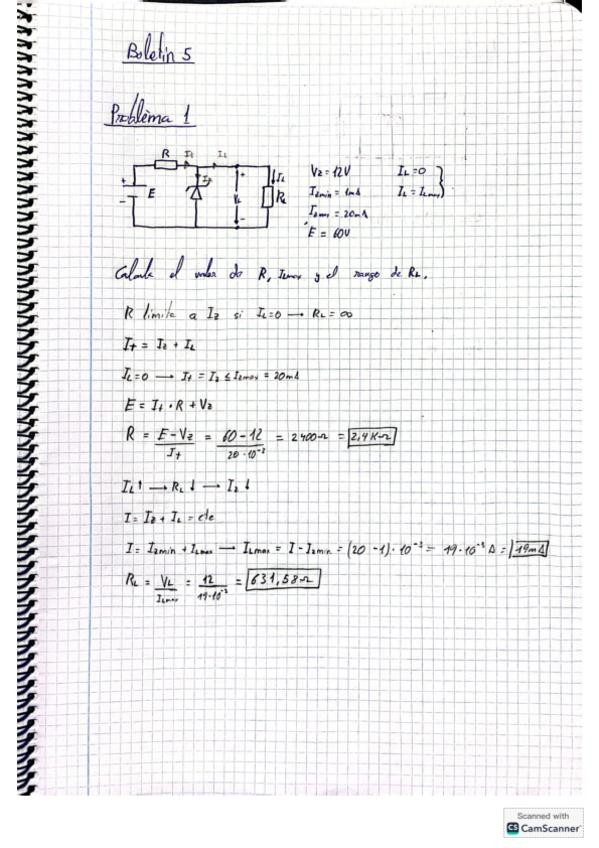 Boletín 5
Problema 1
R It IL
+ - E Iz + VL - IL RL
Vz = 12V IL = 0
Izmin = 1mA IL = ILmax
Izmax = 20mA
E = 60V
Calcula el valor de R, ILmax y el rango de RL.
R limita a Iz si IL=0 → RL = ∞
It = Iz + IL
IL=0 → It = Iz ≤ Izmax = 20mA
E = It · R + Vz
R = E-Vz / It = 60-12 / 20·10⁻³ = 2400Ω = 2,4KΩ
IL↑ → RL↓ → Iz↓
I = Iz + IL = cte
I = Izmin + ILmax → ILmax = I - Izmin = (20 - 1)·10⁻³ = 19·10⁻³ A = 19mA
RL = VL / ILmax = 12 / 19·10⁻³ = 631,58Ω
Scanned with
CS CamScanner